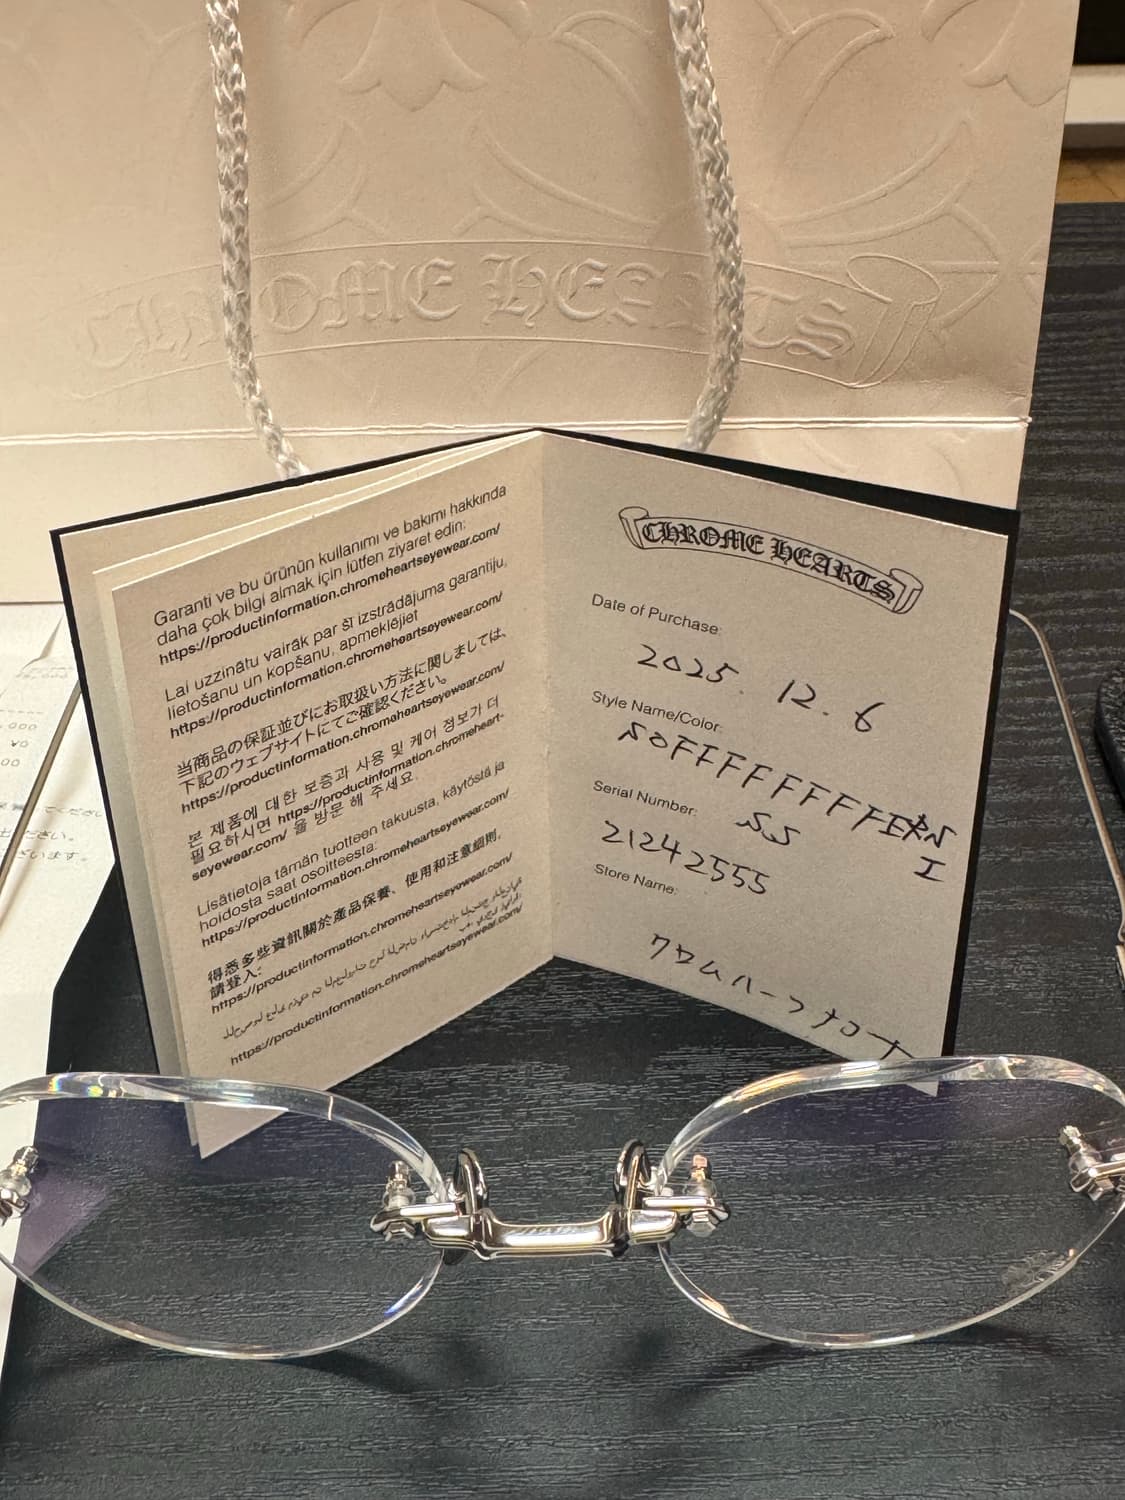 CHROME HEARTS
Garanti ve bu ürünün kullanımı ve bakımı hakkında
daha çok bilgi almak için lütfen ziyaret edin:
https://productinformation.chromeheartseyewear.com/
Lai uzzinātu vairāk par šī izstrādājuma garantiju,
lietošanu un kopšanu, apmeklējiet
https://productinformation.chromeheartseyewear.com/
当商品の保証並びにお取扱い方法に関しましては、
下記のウェブサイトにてご確認ください。
https://productinformation.chromeheartseyewear.com/
본 제품에 대한 보증과 사용 및 케어 정보가 더
필요하시면 https://productinformation.chromeheart-
seyewear.com/ 을 방문 해 주세요.
Lisätietoja tämän tuotteen takuusta, käytöstä ja
hoidosta saat osoitteesta:
https://productinformation.chromeheartseyewear.com/
得悉多些資訊關於產品保養、使用和注意細則,
請登入:
https://productinformation.chromeheartseyewear.com/
https://productinformation.chromeheartseyewear.com/
CHROME HEARTS
Date of Purchase:
2025. 12. 6
Style Name/Color:
SS
Serial Number:
21242555
Store Name: